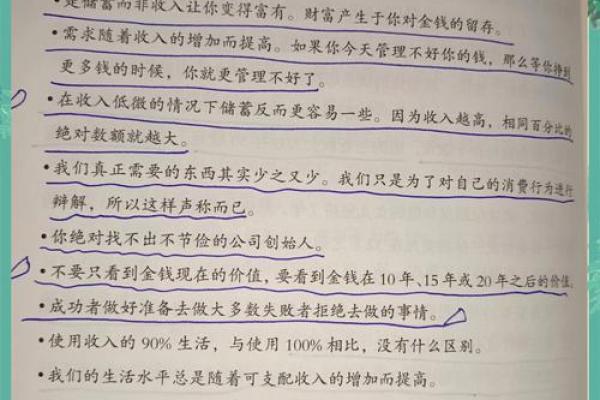 •是储蓄而非收入让你变得富有。财富产生于你对金钱的留存。
•需求随着收入的增加而提高。如果你今天管理不好你的钱，那么等你挣到
更多钱的时候，你就更管理不好了。
•在收入低微的情况下储蓄反而更容易一些。因为收入越高，相同百分比的
绝对数额就越大。
•我们真正需要的东西其实少之又少。我们只是为了对自己的消费行为进行
辩解，所以这样声称而已。
•你绝对找不出不节俭的公司创始人。
•不要只看到金钱现在的价值，要看到金钱在10年、15年或20年之后的价值。
•成功者做好准备去做大多数失败者拒绝去做的事情。
•使用收入的90%生活，与使用100%相比，没有什么区别。
•我们的生活水平总是随着可支配收入的增加而提高。